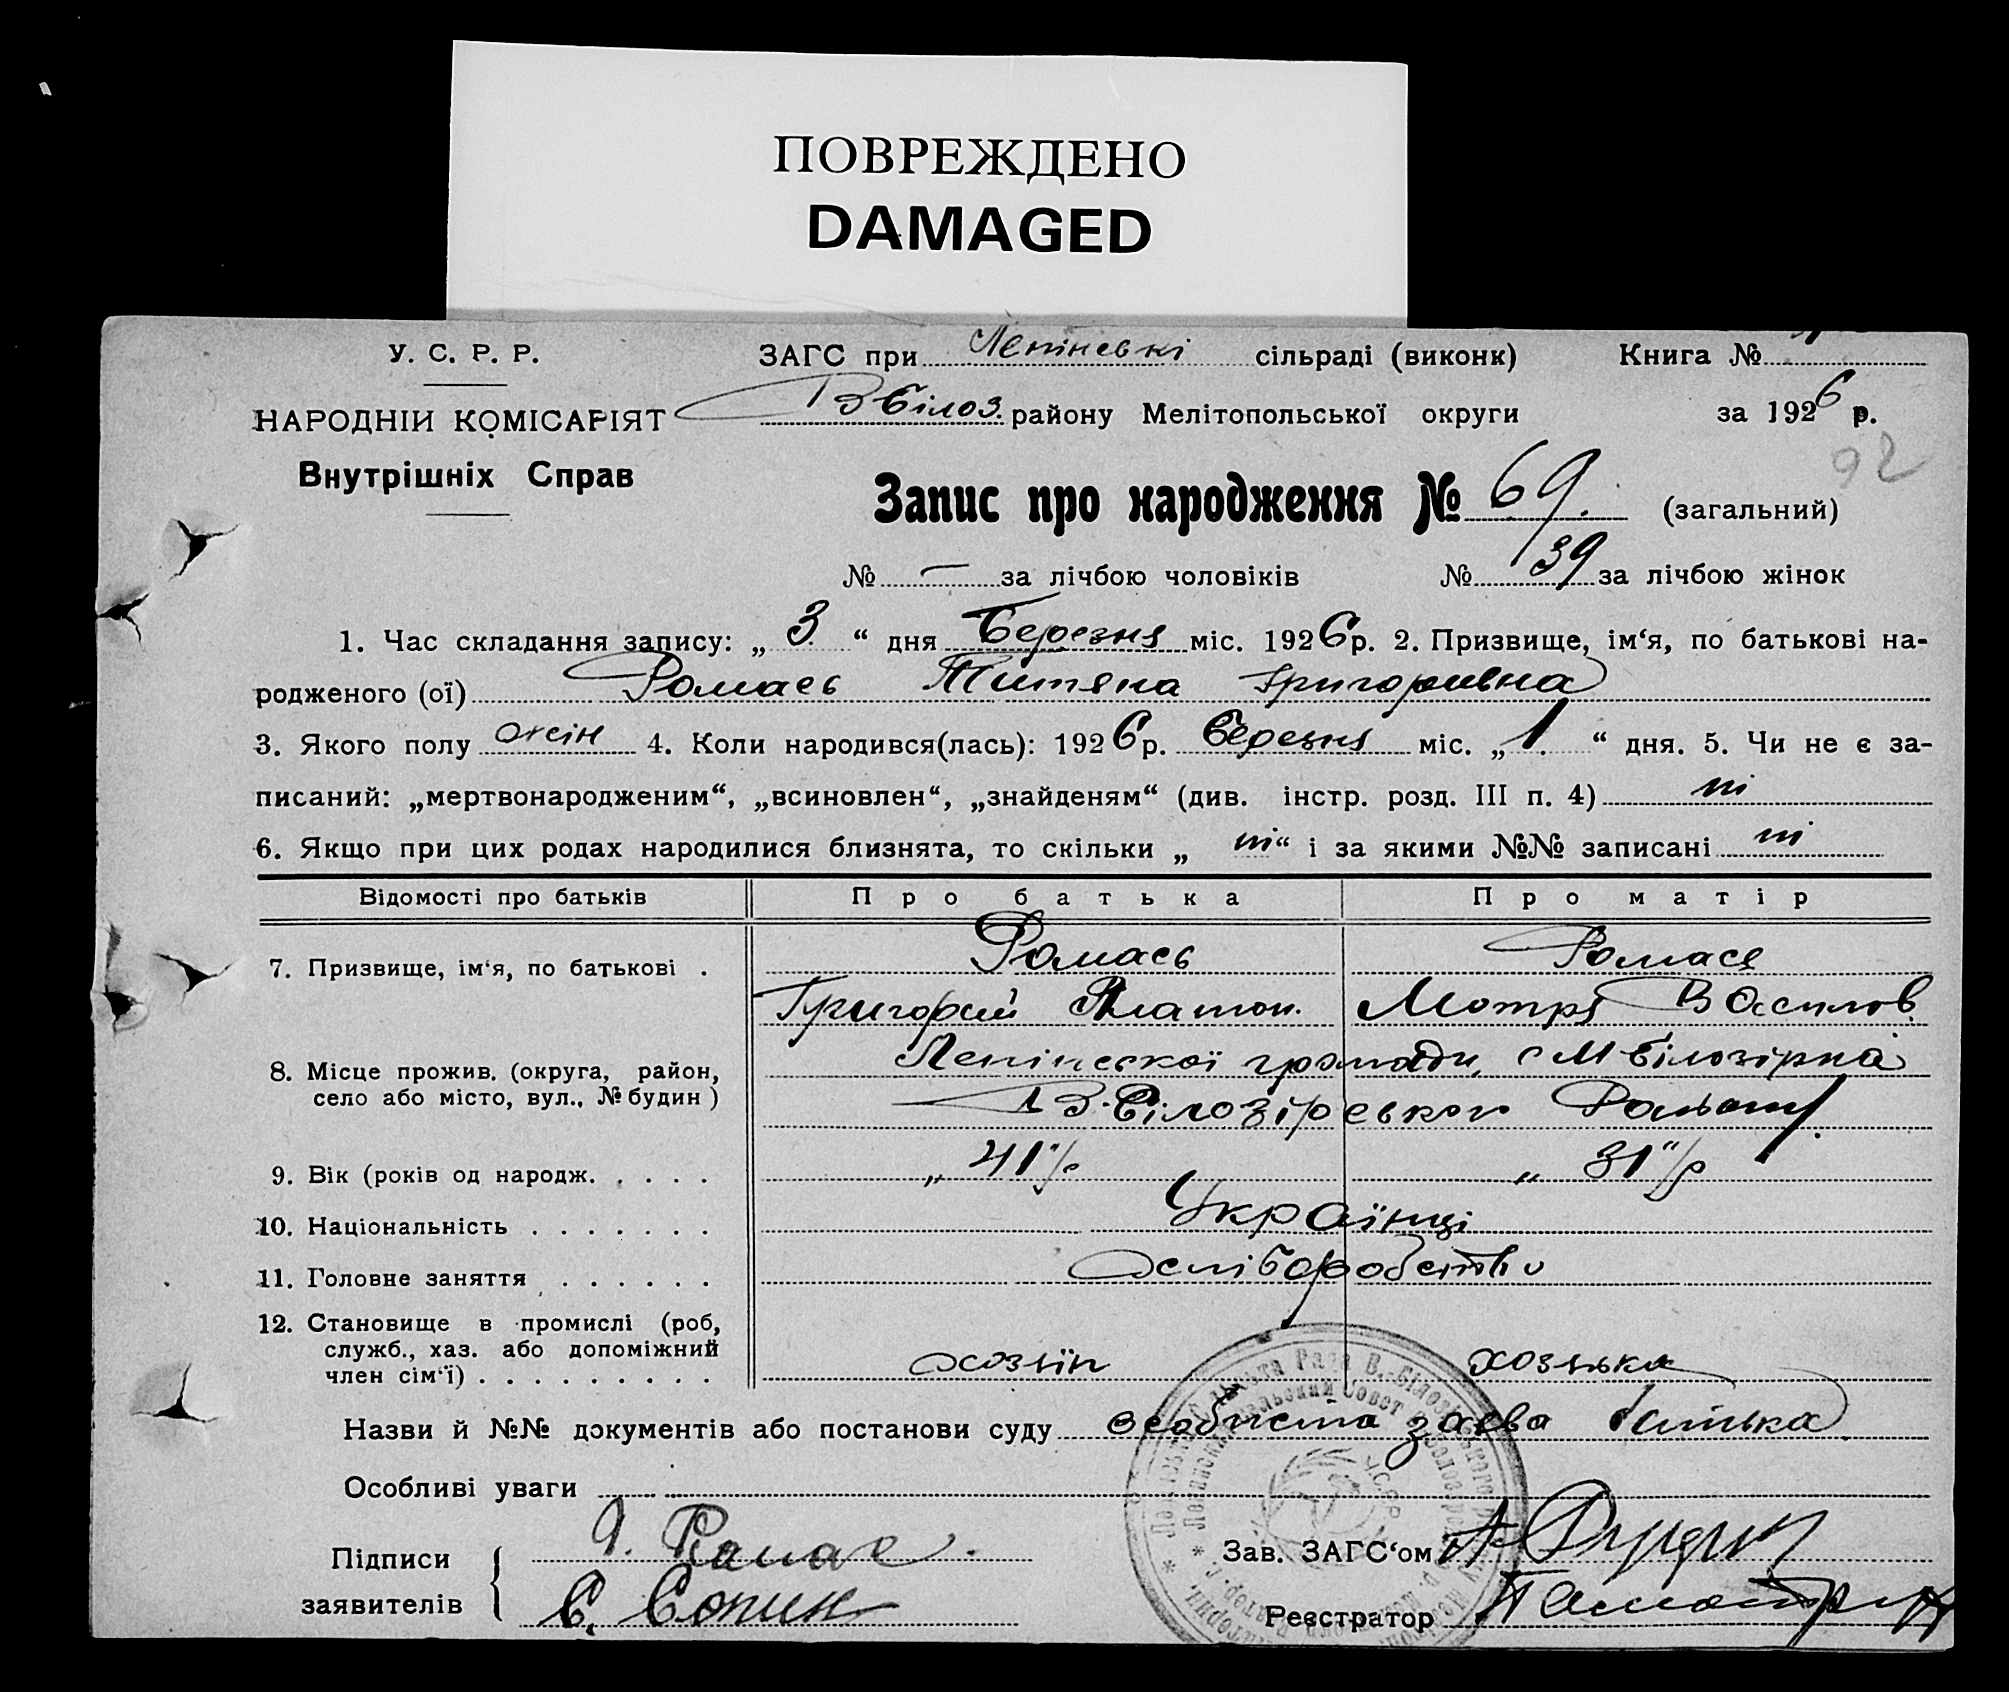 ПОВРЕЖДЕНО
DAMAGED
У. С. Р. Р.
НАРОДНІЙ КОМІСАРІЯТ
Внутрішніх Справ
ЗАГС при Ленінські сільраді (виконк) Книга №
В Білоз. району Мелітопольської округи за 1926 р.
92
Запис про народження № 69. (загальний)
№ — за лічбою чоловіків № 39 за лічбою жінок
1. Час складання запису: „ 3. “ дня Березня міс. 1926 р. 2. Призвище, ім‘я, по батькові на-
родженого (ої) Ромась Титяна Григоривна
3. Якого полу жін 4. Коли народився(лась): 1926 р. Березня міс. „ 1. “ дня. 5. Чи не є за-
писаний: „мертвонародженим“, „всиновлен“, „знайденям“ (див. інстр. розд. III п. 4) ні
6. Якщо при цих родах народилися близнята, то скільки „ ні “ і за якими №№ записані ні
Відомості про батьків Про батька Про матір
7. Призвище, ім‘я, по батькові . Ромась Ромася
Григорий Платон. Мотря Василов.
8. Місце прожив. (округа, район, село або місто, вул., № будин ) Ленінської громади, с М Білозірка
В. Білозірського Району.
9. Вік (років од народж. . . . . „ 41 „ 31
10. Національність . . . . . . . Українці
11. Головне заняття . . . . . . хліборобство
12. Становище в промислі (роб, служб., хаз. або допоміжний член сім‘ї) . . . . . . . . . хозяїн хозяйка
Назви й №№ документів або постанови суду особиста заява батька
Особливі уваги
Підписи
заявителів
Г. Ромас
Зав. ЗАГС‘ом
Реєстратор
У.С.Р.Р.